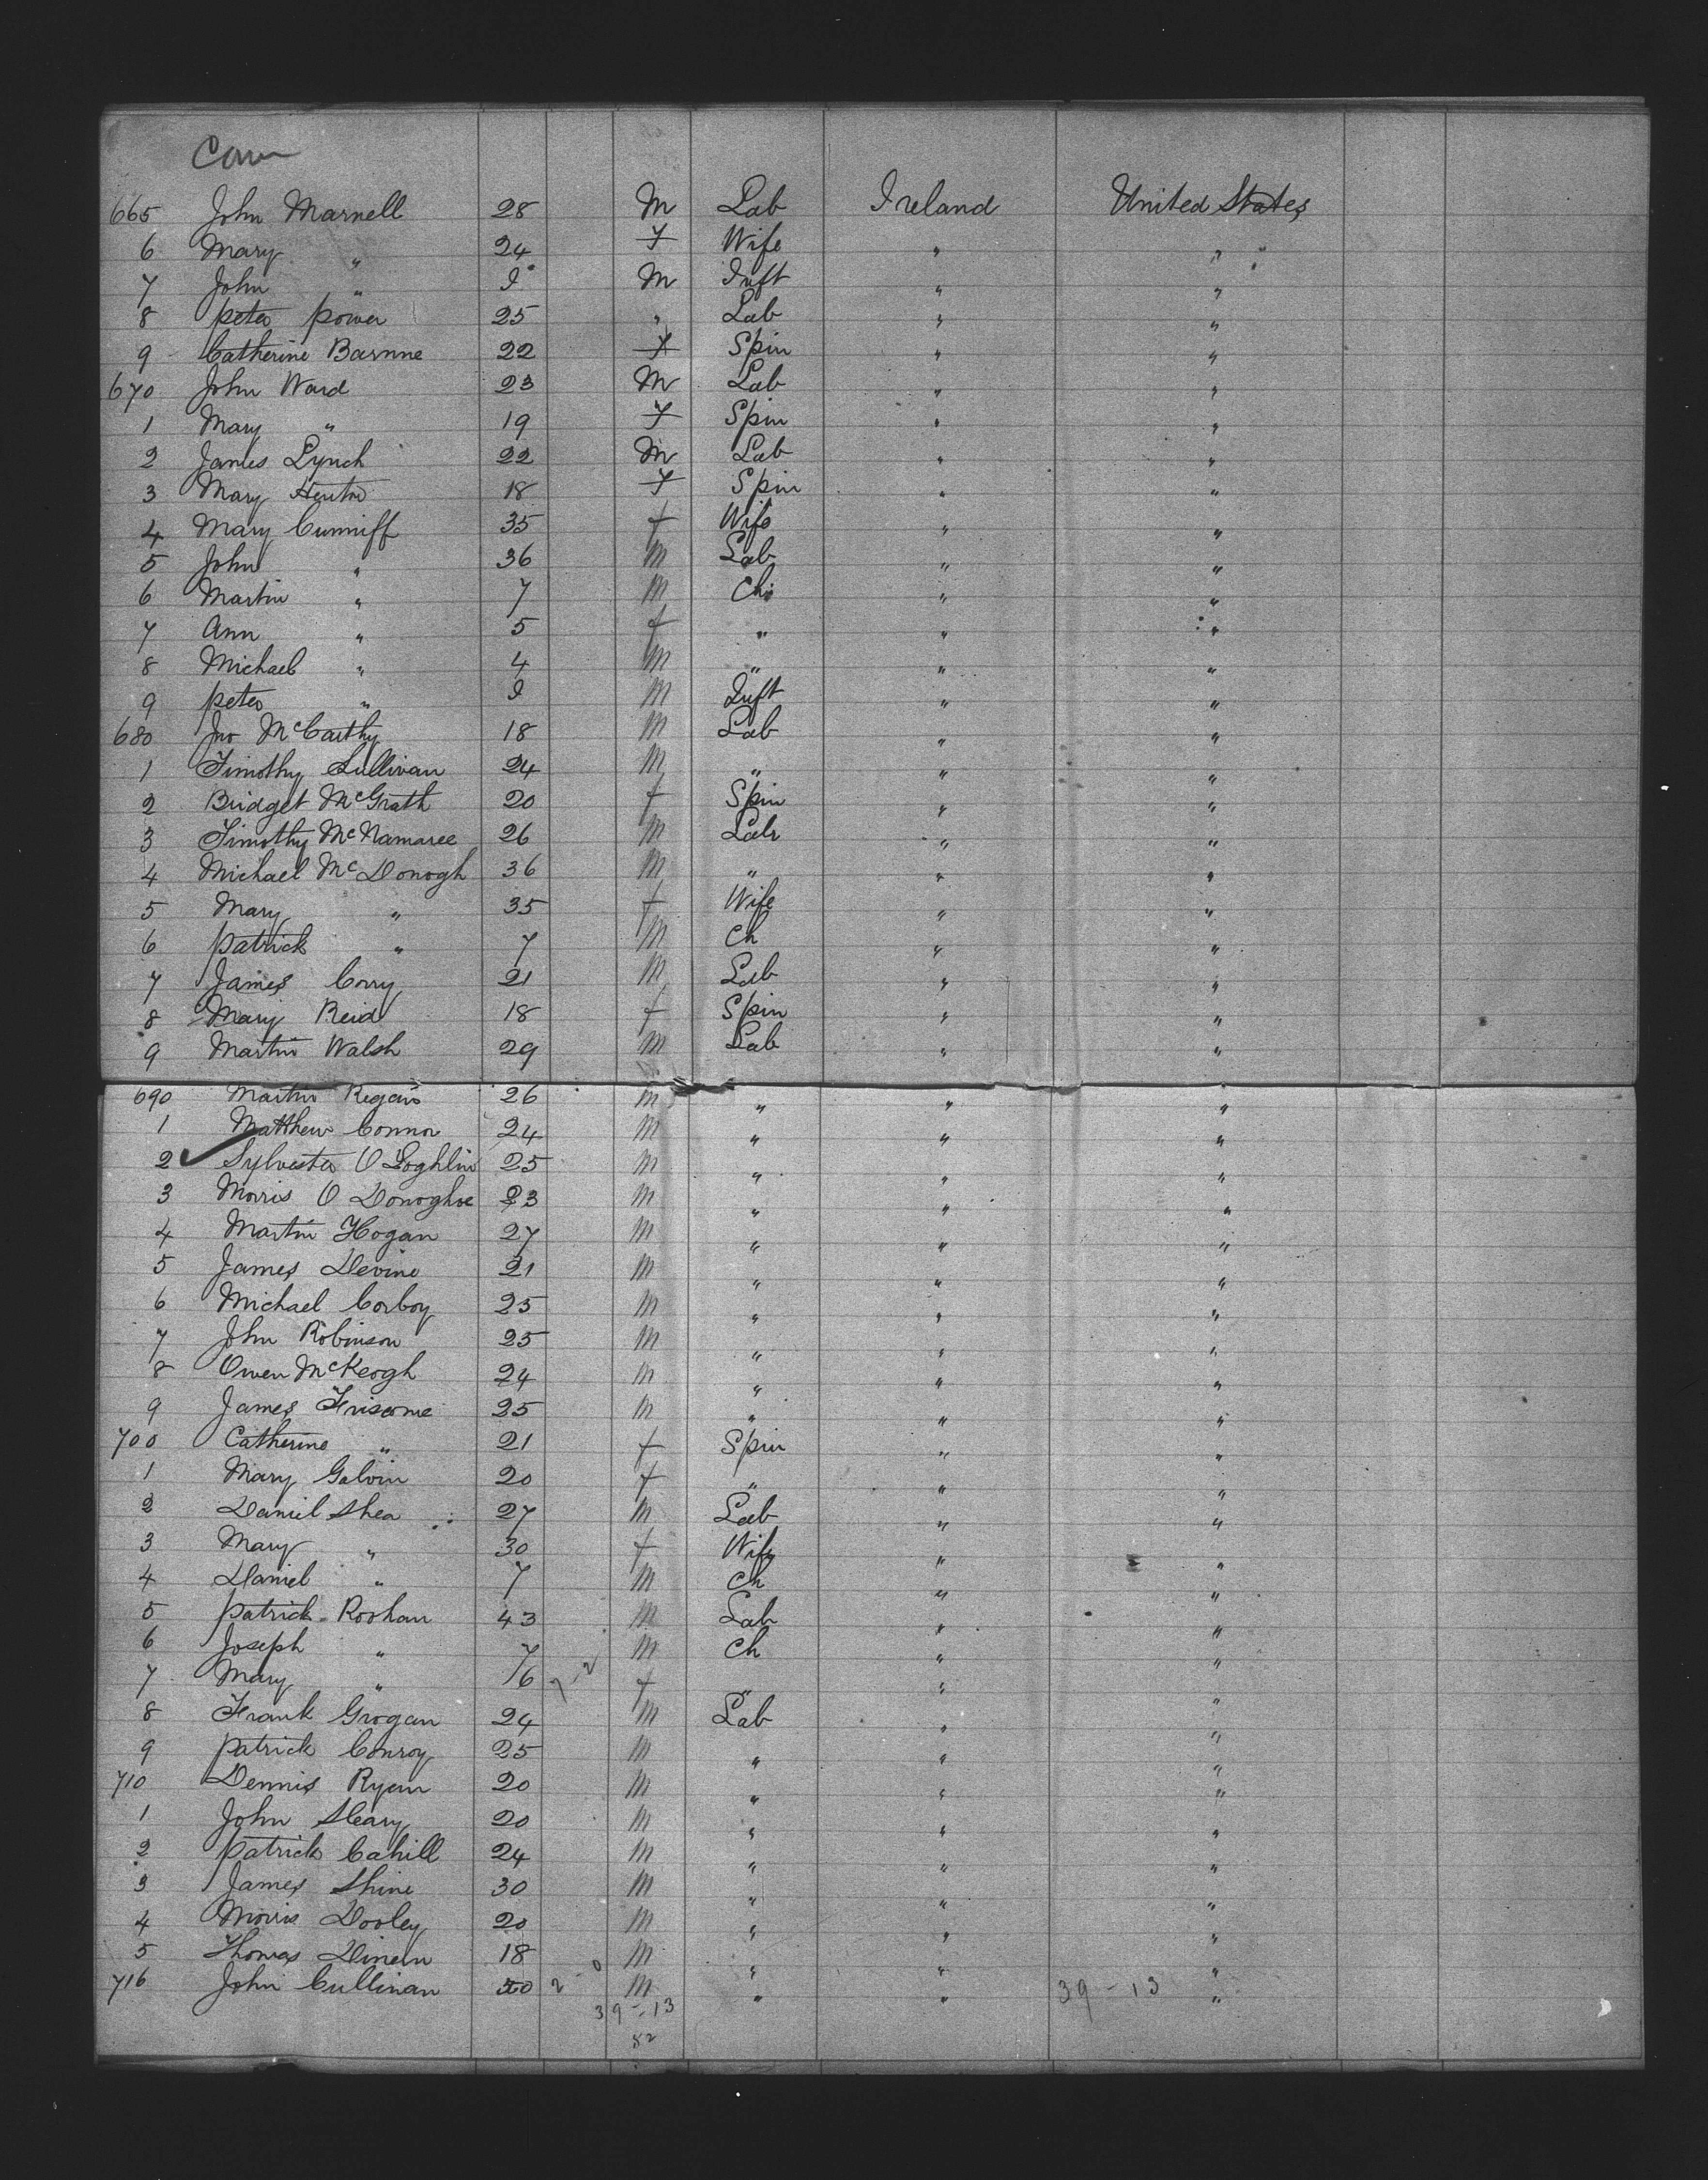 665 John Marnell 28 M Lab Ireland United States
6 Mary " 24 F Wife " "
7 John " M Inft " "
8 Peter Power 25 " Lab " "
9 Catherine 22 F Spin " "
670 John Ward 23 M Lab " "
1 Mary " 19 F Spin " "
2 James Lynch 22 M Lab " "
3 Mary 18 F Spin " "
4 Mary Cunniff 35 f Wife " "
5 John " 36 M Lab " "
6 Martin " 7 M Ch " "
7 Ann " 5 f " " "
8 Michael " 4 M " " "
9 Peter " M Inft " "
680 Jno McCarthy 18 M Lab " "
1 Timothy Sullivan 24 M " " "
2 Bridget McGrath 20 f Spin " "
3 Timothy McNamaree 26 M Lab " "
4 Michael McDonogh 36 M " " "
5 Mary " 35 f Wife " "
6 Patrick " 7 M Ch " "
7 James Corry 21 M Lab " "
8 Mary Reid 18 f Spin " "
9 Martin Walsh 29 M Lab " "
690 Martin Regan 26 M " " "
1 Matthew Connor 24 M " " "
2 Sylvester O Loghlin 25 M " " "
3 Morris O Donoghoe 23 M " " "
4 Martin Hogan 27 M " " "
5 James Devine 21 M " " "
6 Michael Corboy 25 M " " "
7 John Robinson 25 M " " "
8 Owen McKeogh 24 M " " "
9 James 25 M " " "
700 Catherine " 21 f Spin " "
1 Mary Galvin 20 f " " "
2 Daniel Shea 27 M Lab " "
3 Mary " 30 f Wife " "
4 Daniel " 7 M Ch " "
5 Patrick Roohan 43 M Lab " "
6 Joseph " 7 M Ch " "
7 Mary " 6 f " " "
8 Frank Grogan 24 M Lab " "
9 Patrick Conroy 25 M " " "
710 Dennis Ryan 20 M " " "
1 John Sleary 20 M " " "
2 Patrick Cahill 24 M " " "
3 James Shine 30 M " " "
4 Morris Dooley 20 M " " "
5 Thomas Dineen 18 M " " "
716 John Cullinan 50 M " " 39 - 13 "
39 - 13
52